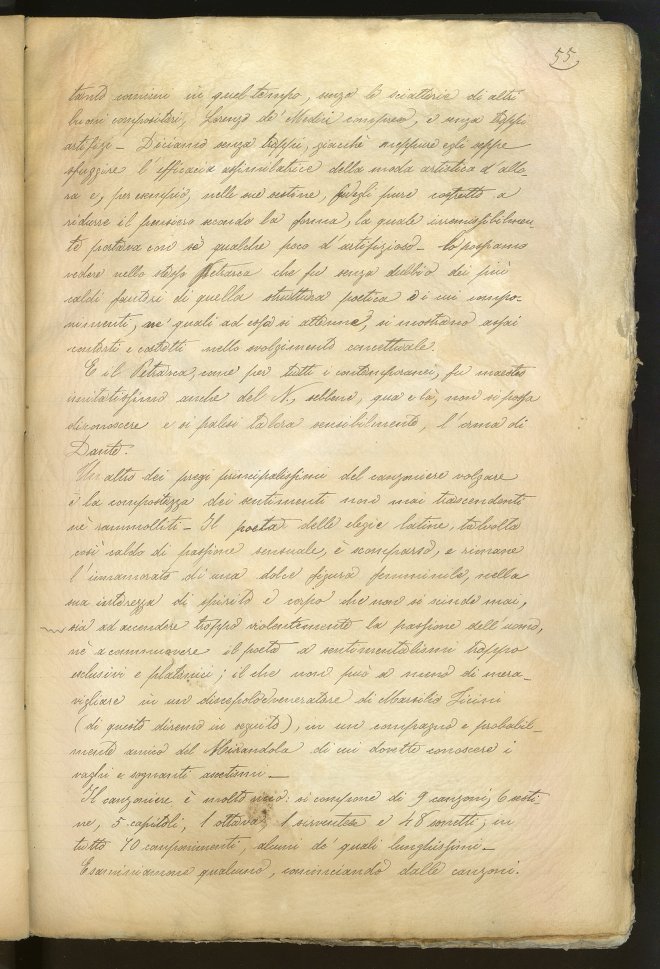 55
tanto comuni in quel tempo, senza le sciatterie di altri
buoni compositori, Lorenzo de' Medici compreso, e senza troppi
artifizi – Diciamo senza troppi, giacchè neppure egli seppe
sfuggire l'efficacia assimilatrice della moda artistica d'allo-
ra e, per esempio, nelle sue sestine, fu egli pure costretto a
ridurre il pensiero secondo la forma, la quale irremissibilmen-
te portava con sè qualche poco d'artifizioso – Lo possiamo
vedere nello stesso Petrarca che fu senza dubbio dei più
caldi fautori di quella struttura poetica e i cui compo-
nimenti, ne' quali ad essa si attenne, si mostrano assai
contorti e costretti nello svolgimento concettuale.
E il Petrarca, come per tutti i contemporanei, fu maestro
imitatissimo anche del N., sebbene, qua e là, non si possa
disconoscere e si palesi talora sensibilmente, l'orma di
Dante.
Un altro dei pregi principalissimi del canzoniere volgare
è la compostezza dei sentimenti non mai trascendenti
nè rammolliti – Il poeta delle elegie latine, talvolta
così caldo di passione sensuale, è scomparso, e rimane
l'innamorato di una dolce figura femminile, nella
sua interezza di spirito e corpo che non si scinde mai,
sia ad accendere troppo violentemente la passione dell'uomo,
nè a commuovere il poeta a sentimentalismi troppo
esclusivi e platonici; il che non può a meno di mera-
vigliare in un discepolo e veneratore di Marsilio Ficini
(di questo diremo in seguito), in un compagno e probabil-
mente amico del Mirandola di cui dovette conoscere i
vaghi e sognanti ascetismi –
Il canzoniere è molto vario: si compone di 9 canzoni, 6 sesti-
ne, 5 capitoli, 1 ottava, 1 serventese e 48 sonetti; in
tutto 70 componimenti, alcuni de' quali lunghissimi –
Esaminiamone qualcuno, cominciando dalle canzoni.